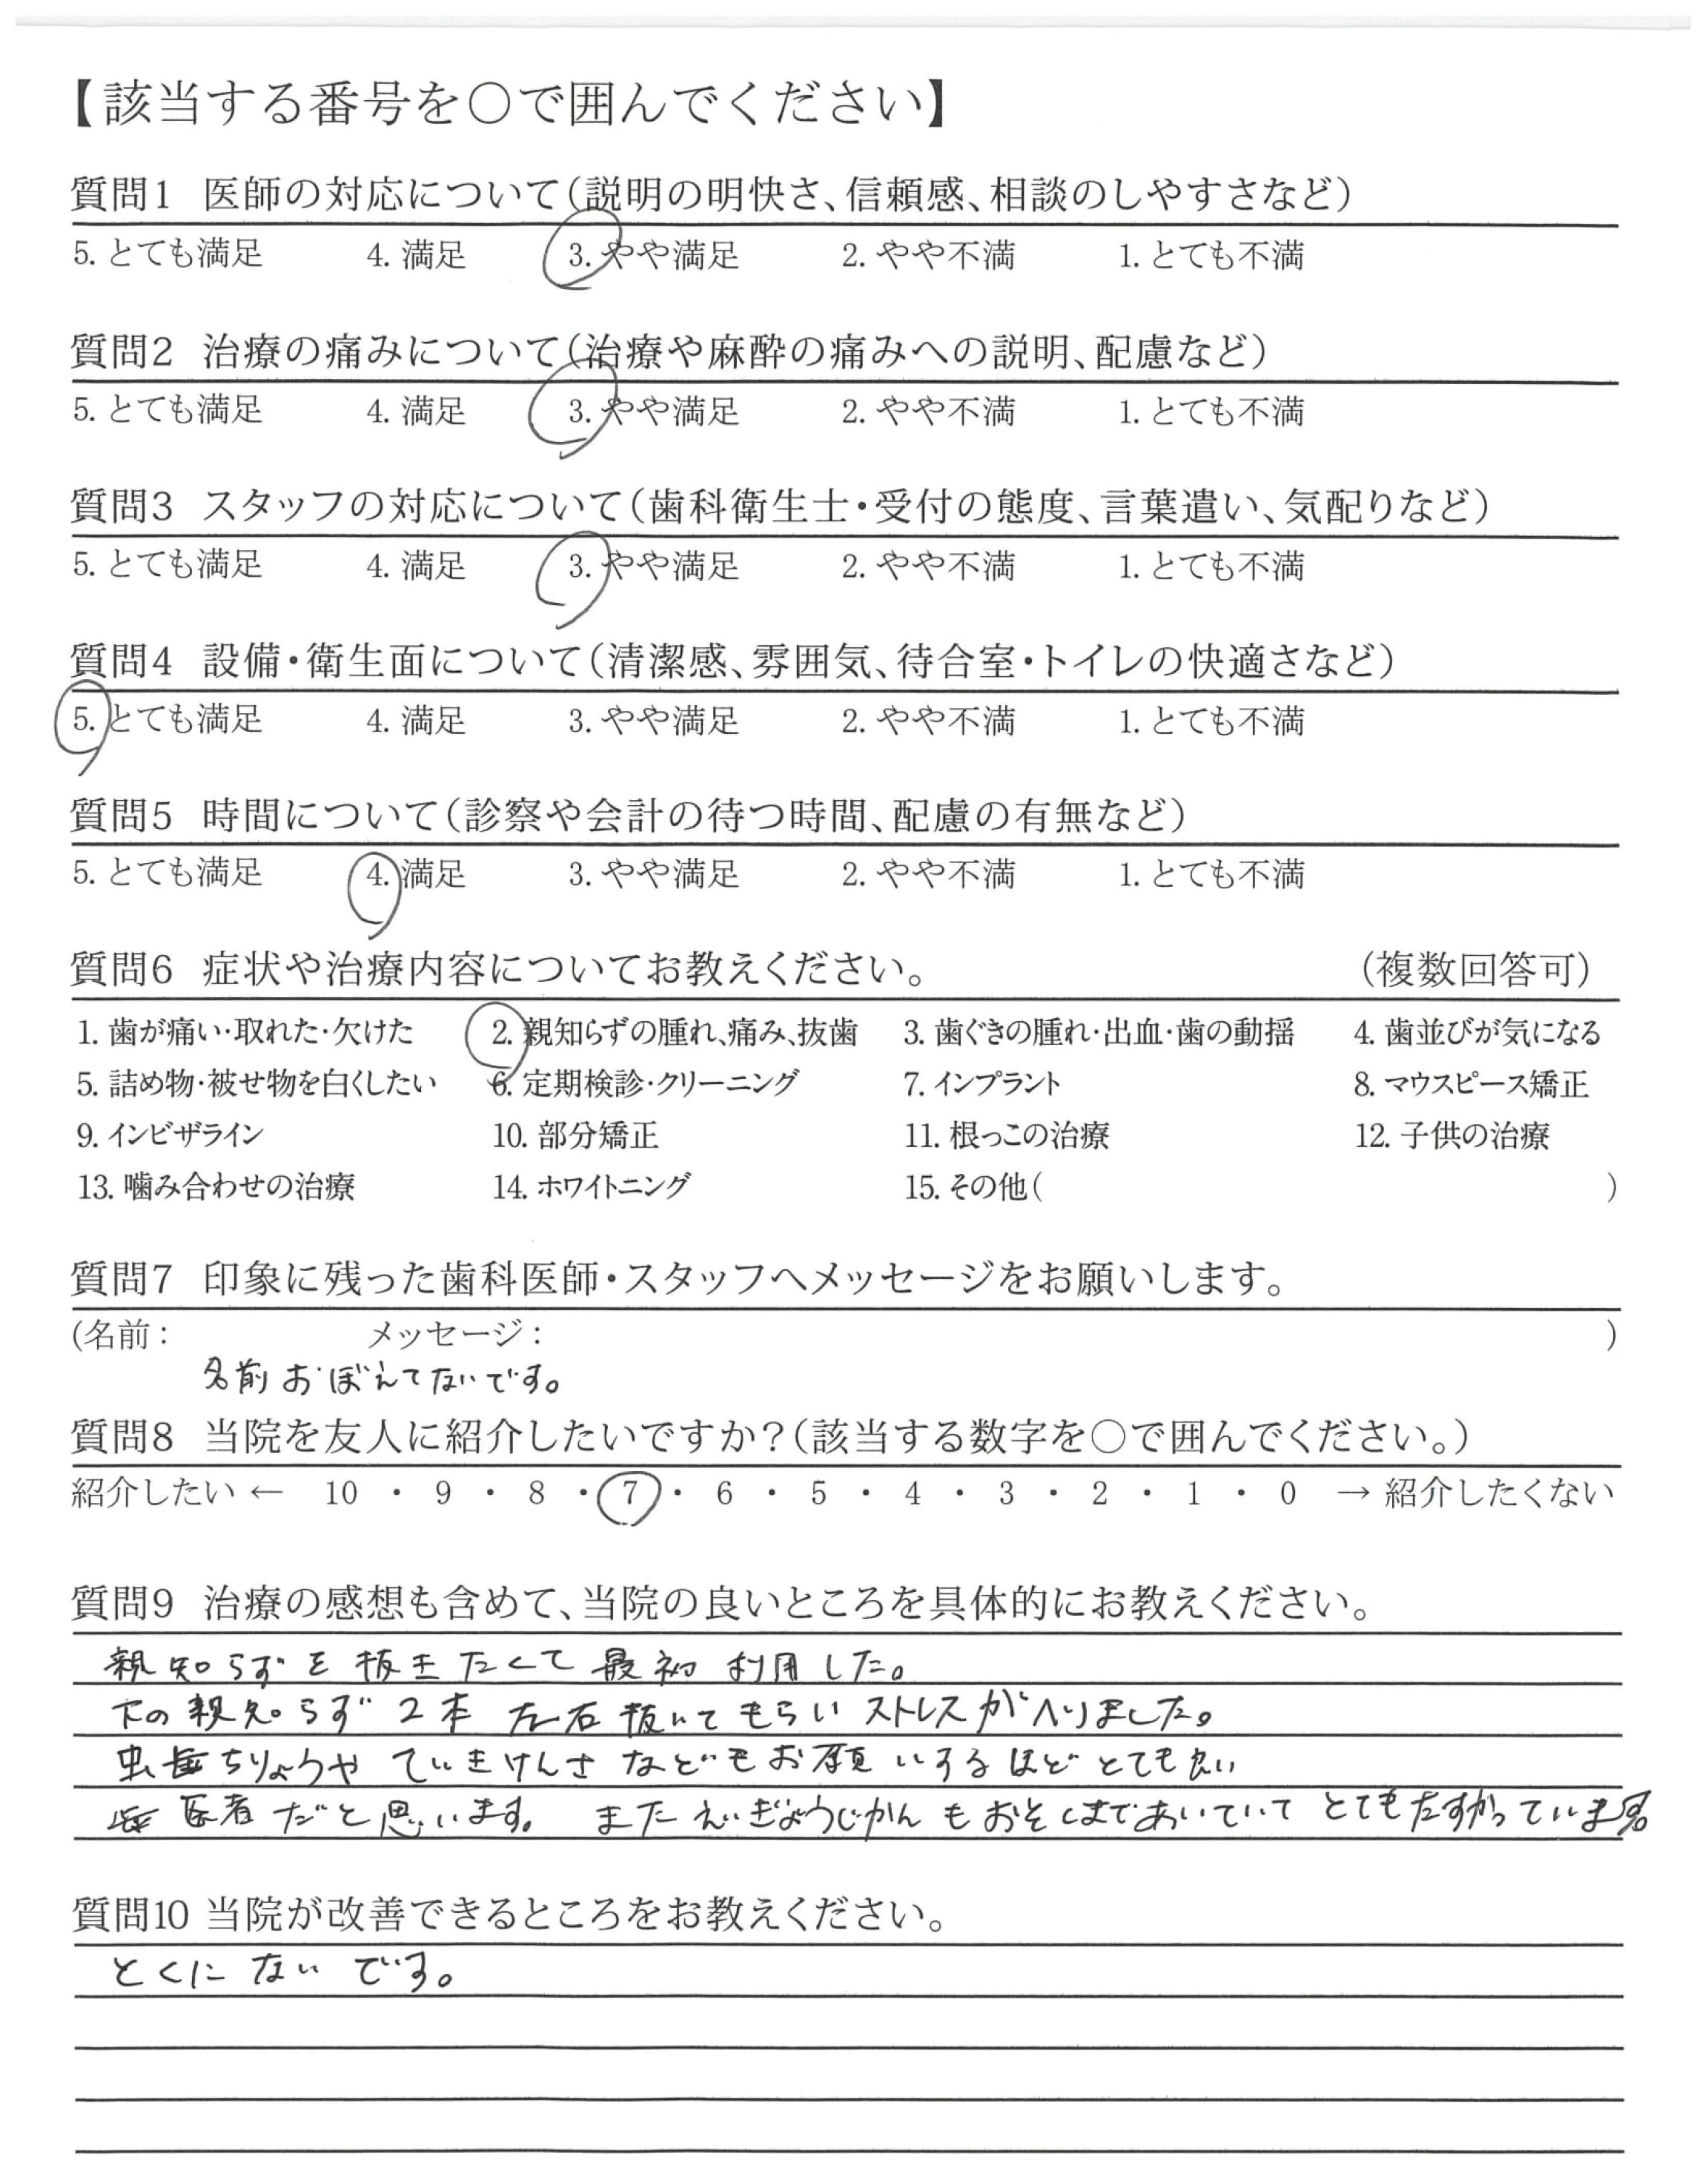 【該当する番号を○で囲んでください】
質問1 医師の対応について(説明の明快さ、信頼感、相談のしやすさなど)
5. とても満足 4. 満足 3. やや満足 2. やや不満 1. とても不満
質問2 治療の痛みについて(治療や麻酔の痛みへの説明、配慮など)
5. とても満足 4. 満足 3. やや満足 2. やや不満 1. とても不満
質問3 スタッフの対応について(歯科衛生士・受付の態度、言葉遣い、気配りなど)
5. とても満足 4. 満足 3. やや満足 2. やや不満 1. とても不満
質問4 設備・衛生面について(清潔感、雰囲気、待合室・トイレの快適さなど)
5. とても満足 4. 満足 3. やや満足 2. やや不満 1. とても不満
質問5 時間について(診察や会計の待つ時間、配慮の有無など)
5. とても満足 4. 満足 3. やや満足 2. やや不満 1. とても不満
質問6 症状や治療内容についてお教えください。 (複数回答可)
1. 歯が痛い・取れた・欠けた 2. 親知らずの腫れ、痛み、抜歯 3. 歯ぐきの腫れ・出血・歯の動揺 4. 歯並びが気になる
5. 詰め物・被せ物を白くしたい 6. 定期検診・クリーニング 7. インプラント 8. マウスピース矯正
9. インビザライン 10. 部分矯正 11. 根っこの治療 12. 子供の治療
13. 噛み合わせの治療 14. ホワイトニング 15. その他( )
質問7 印象に残った歯科医師・スタッフへメッセージをお願いします。
(名前: メッセージ: )
名前おぼえてないです。
質問8 当院を友人に紹介したいですか?(該当する数字を○で囲んでください。)
紹介したい ← 10 ・ 9 ・ 8 ・ 7 ・ 6 ・ 5 ・ 4 ・ 3 ・ 2 ・ 1 ・ 0 → 紹介したくない
質問9 治療の感想も含めて、当院の良いところを具体的にお教えください。
親知らずを抜きたくて最初利用した。
下の親知らず2本左右抜いてもらいストレスがへりました。
虫歯ちりょうやていきけんさなどもお願いするほどとても良い
歯医者だと思います。 またえいぎょうじかんもおそくまであいていてとてもたすかっています。
質問10 当院が改善できるところをお教えください。
とくにないです。